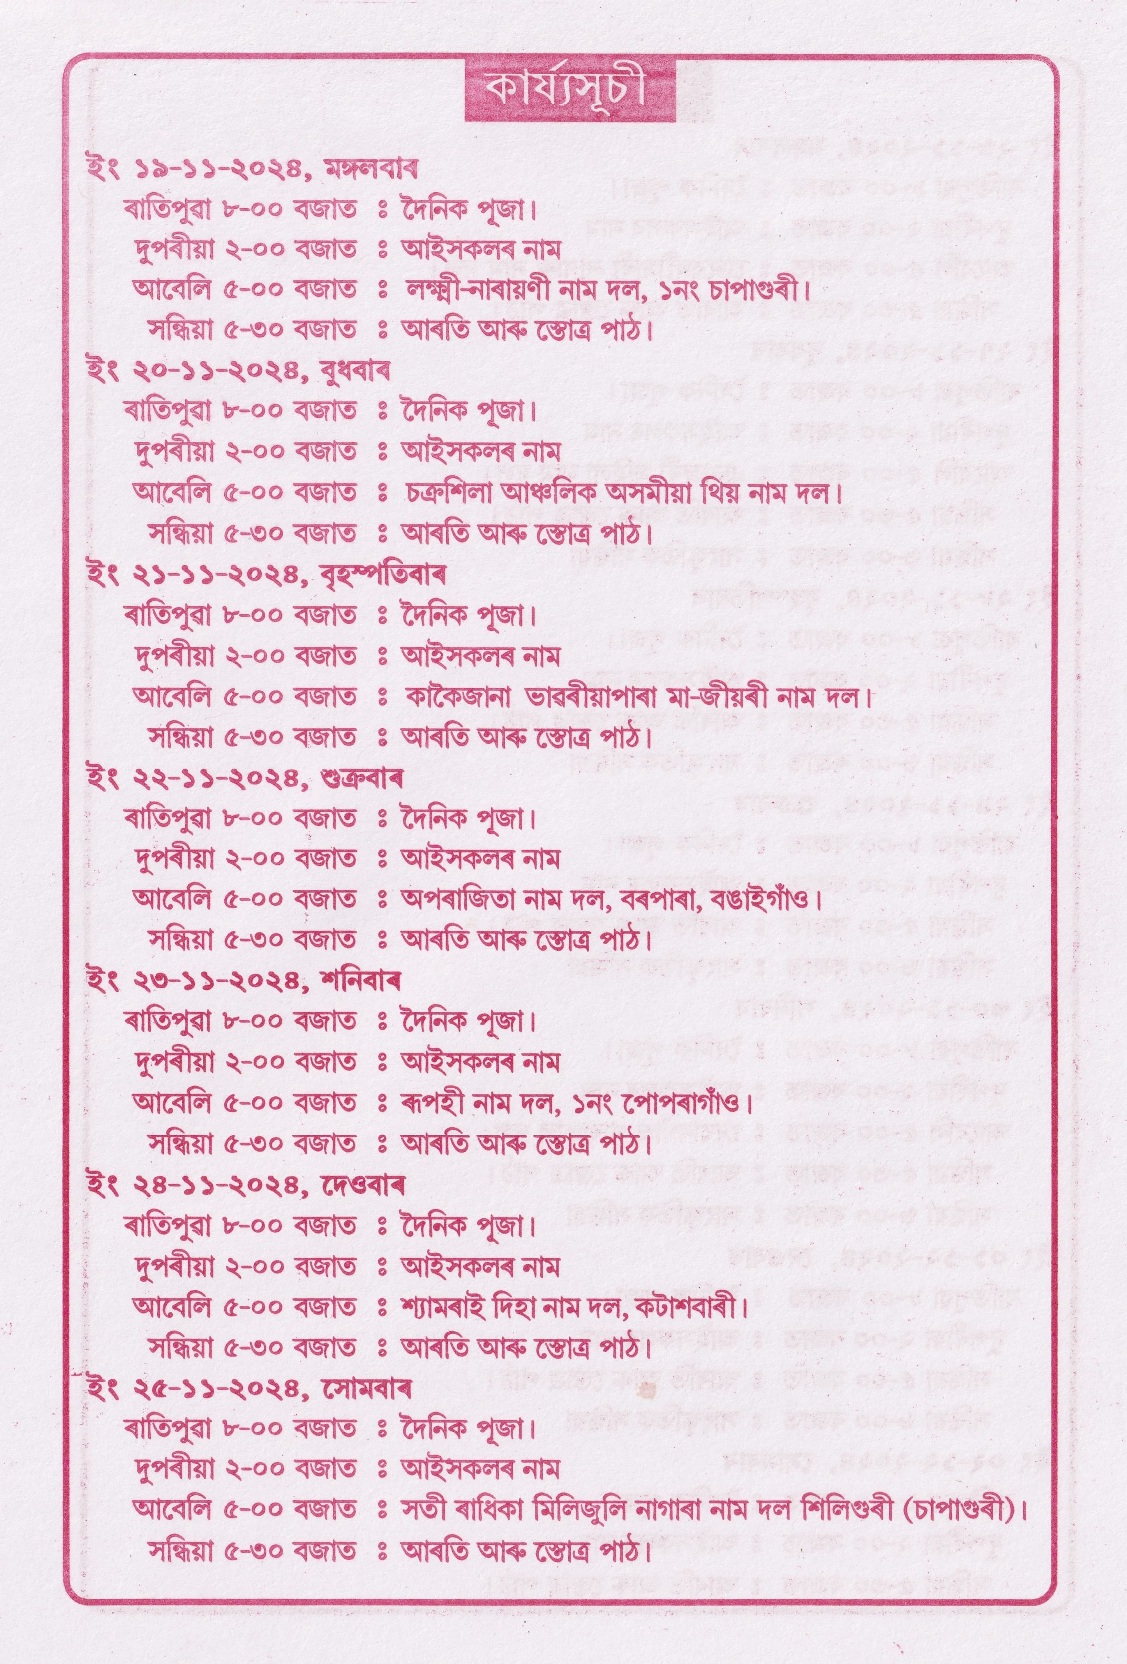 কাৰ্য্যসূচী
ইং ১৯-১১-২০২৪, মঙ্গলবাৰ
ৰাতিপুৱা ৮-০০ বজাত ঃ দৈনিক পূজা।
দুপৰীয়া ২-০০ বজাত ঃ আইসকলৰ নাম
আবেলি ৫-০০ বজাত ঃ লক্ষ্মী-নাৰায়ণী নাম দল, ১নং চাপাগুৰী।
সন্ধিয়া ৫-৩০ বজাত ঃ আৰতি আৰু স্তোত্ৰ পাঠ।
ইং ২০-১১-২০২৪, বুধবাৰ
ৰাতিপুৱা ৮-০০ বজাত ঃ দৈনিক পূজা।
দুপৰীয়া ২-০০ বজাত ঃ আইসকলৰ নাম
আবেলি ৫-০০ বজাত ঃ চক্ৰশিলা আঞ্চলিক অসমীয়া থিয় নাম দল।
সন্ধিয়া ৫-৩০ বজাত ঃ আৰতি আৰু স্তোত্ৰ পাঠ।
ইং ২১-১১-২০২৪, বৃহস্পতিবাৰ
ৰাতিপুৱা ৮-০০ বজাত ঃ দৈনিক পূজা।
দুপৰীয়া ২-০০ বজাত ঃ আইসকলৰ নাম
আবেলি ৫-০০ বজাত ঃ কাকৈজানা ভাৱৰীয়াপাৰা মা-জীয়ৰী নাম দল।
সন্ধিয়া ৫-৩০ বজাত ঃ আৰতি আৰু স্তোত্ৰ পাঠ।
ইং ২২-১১-২০২৪, শুক্ৰবাৰ
ৰাতিপুৱা ৮-০০ বজাত ঃ দৈনিক পূজা।
দুপৰীয়া ২-০০ বজাত ঃ আইসকলৰ নাম
আবেলি ৫-০০ বজাত ঃ অপৰাজিতা নাম দল, বৰপাৰা, বঙাইগাঁও।
সন্ধিয়া ৫-৩০ বজাত ঃ আৰতি আৰু স্তোত্ৰ পাঠ।
ইং ২৩-১১-২০২৪, শনিবাৰ
ৰাতিপুৱা ৮-০০ বজাত ঃ দৈনিক পূজা।
দুপৰীয়া ২-০০ বজাত ঃ আইসকলৰ নাম
আবেলি ৫-০০ বজাত ঃ ৰূপহী নাম দল, ১নং পোপৰাগাঁও।
সন্ধিয়া ৫-৩০ বজাত ঃ আৰতি আৰু স্তোত্ৰ পাঠ।
ইং ২৪-১১-২০২৪, দেওবাৰ
ৰাতিপুৱা ৮-০০ বজাত ঃ দৈনিক পূজা।
দুপৰীয়া ২-০০ বজাত ঃ আইসকলৰ নাম
আবেলি ৫-০০ বজাত ঃ শ্যামৰাই দিহা নাম দল, কটাশবাৰী।
সন্ধিয়া ৫-৩০ বজাত ঃ আৰতি আৰু স্তোত্ৰ পাঠ।
ইং ২৫-১১-২০২৪, সোমবাৰ
ৰাতিপুৱা ৮-০০ বজাত ঃ দৈনিক পূজা।
দুপৰীয়া ২-০০ বজাত ঃ আইসকলৰ নাম
আবেলি ৫-০০ বজাত ঃ সতী ৰাধিকা মিলিজুলি নাগাৰা নাম দল শিলিগুৰী (চাপাগুৰী)।
সন্ধিয়া ৫-৩০ বজাত ঃ আৰতি আৰু স্তোত্ৰ পাঠ।